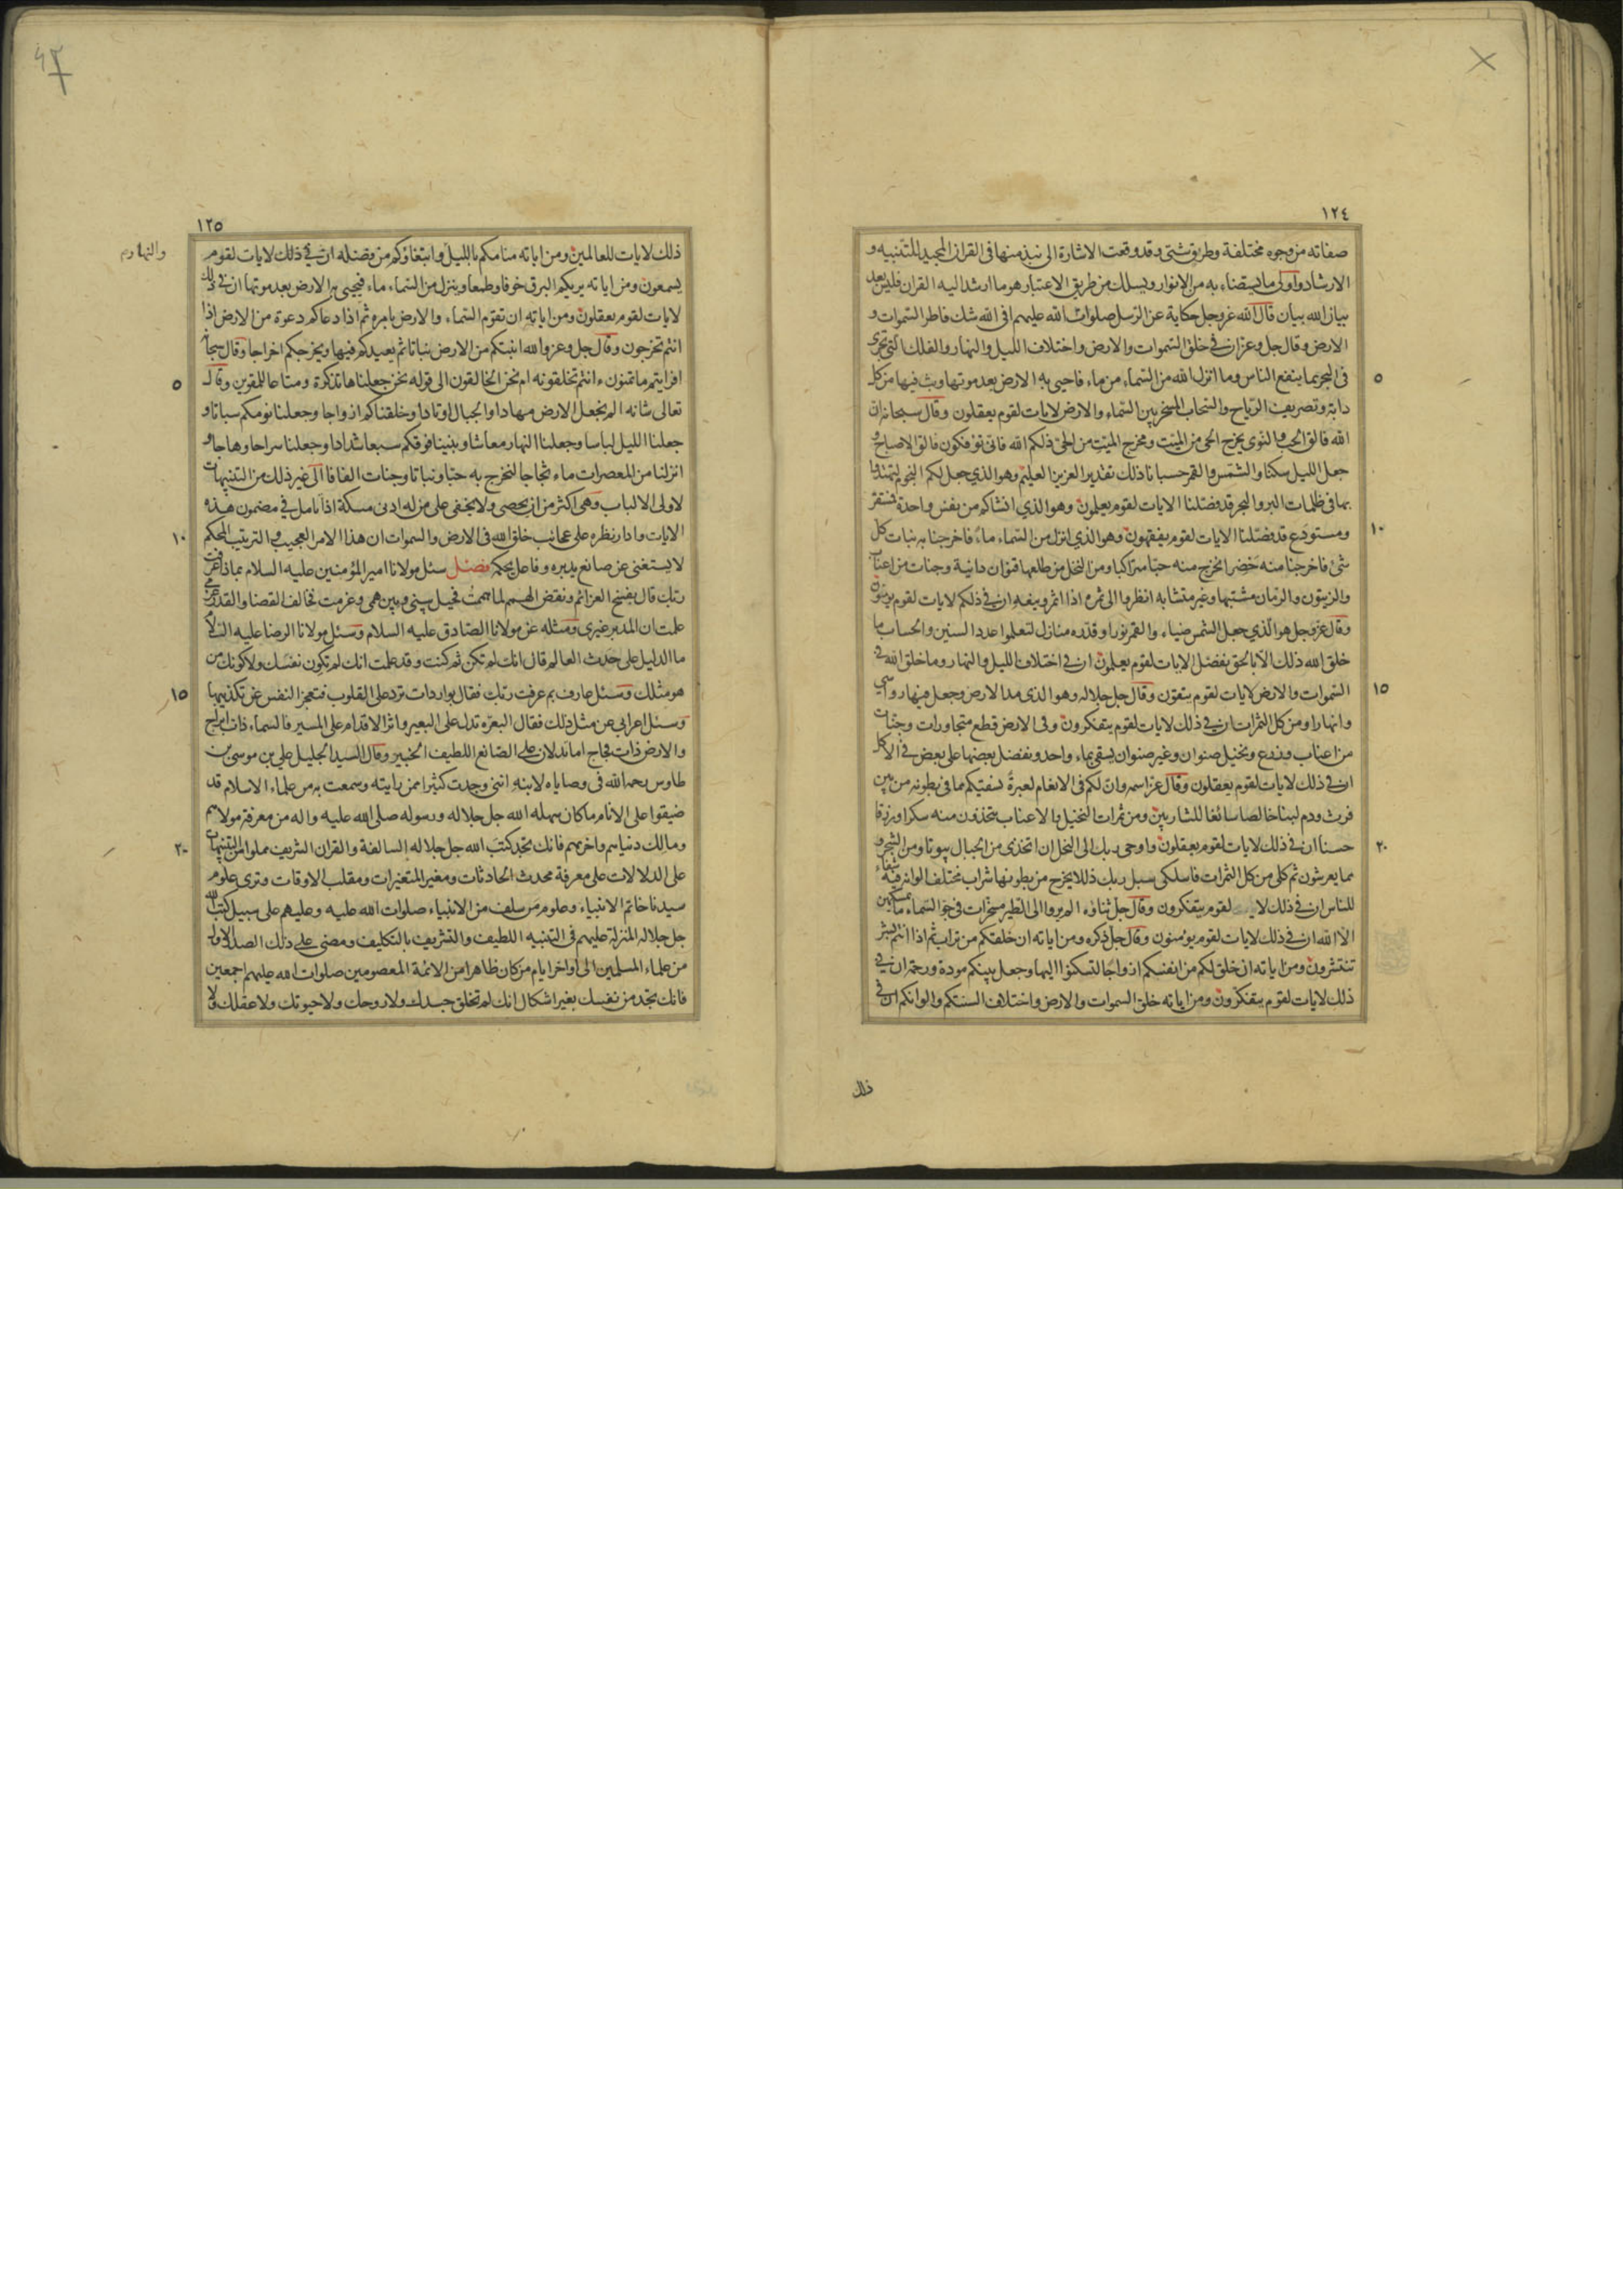 ١٢٤
صفاته من وجوه مختلفة وطرق شتى وقد وقعت الاشارة الى نبذ منها فى القران المجيد للتنبيه و
الارشاد واولى ما يستضاء به من الانوار ويسلك من طريق الاعتبار هو ما ارشد اليه القران فليس بعد
بيان الله بيان قال الله عز وجل حكاية عن الرسل صلوات الله عليهم افى الله شك فاطر السموات و
الارض وقال جل وعز ان فى خلق السموات والارض واختلاف الليل والنهار والفلك التى تجرى
٥
فى البحر بما ينفع الناس وما انزل الله من السماء من ماء فاحيى به الارض بعد موتها وبث فيها من كل
دابة وتصريف الرياح والسحاب المسخر بين السماء والارض لايات لقوم يعقلون وقال سبحانه ان
الله فالق الحب والنوى يخرج الحى من الميت ومخرج الميت من الحى ذلكم الله فانى تؤفكون فالق الاصباح و
جعل الليل سكنا والشمس والقمر حسبانا ذلك تقدير العزيز العليم وهو الذي جعل لكم النجوم لتهتدوا
بها فى ظلمات البر والبحر قد فصلنا الايات لقوم يعلمون وهو الذي انشاكم من نفس واحدة فمستقر
١٠
ومستودع قد فصلنا الايات لقوم يفقهون وهو الذي انزل من السماء ماء فاخرجنا به نبات كل
شئ فاخرجنا منه خضرا نخرج منه حبا متراكبا ومن النخل من طلعها قنوان دانية وجنات من اعناب
والزيتون والرمان مشتبها وغير متشابه انظروا الى ثمره اذا اثمر وينعه ان فى ذلكم لايات لقوم يؤمنون
وقال عز وجل هو الذي جعل الشمس ضياء والقمر نورا وقدره منازل لتعلموا عدد السنين والحساب ما
خلق الله ذلك الا بالحق يفصل الايات لقوم يعلمون ان فى اختلاف الليل والنهار وما خلق الله فى
١٥
السموات والارض لايات لقوم يتقون وقال جل جلاله وهو الذى مد الارض وجعل فيها رواسي
وانهارا ومن كل الثمرات ان فى ذلك لايات لقوم يتفكرون وفى الارض قطع متجاورات وجنات
من اعناب وزرع ونخيل صنوان وغير صنوان يسقى بماء واحد ونفضل بعضها على بعض فى الاكل
ان فى ذلك لايات لقوم يعقلون وقال عز اسمه وان لكم فى الانعام لعبرة نسقيكم مما فى بطونه من بين
فرث ودم لبنا خالصا سائغا للشاربين ومن ثمرات النخيل والاعناب تتخذون منه سكرا ورزقا
٢٠
حسنا ان فى ذلك لايات لقوم يعقلون واوحى ربك الى النحل ان اتخذى من الجبال بيوتا ومن الشجر و
مما يعرشون ثم كلى من كل الثمرات فاسلكى سبل ربك ذللا يخرج من بطونها شراب مختلف الوانه فيه شفاء
للناس ان فى ذلك لاية لقوم يتفكرون وقال جل ثناؤه الم يروا الى الطير مسخرات فى جو السماء ما يمسكهن
الا الله ان فى ذلك لايات لقوم يؤمنون وقال جل ذكره ومن اياته ان خلقكم من تراب ثم اذا انتم بشر
تنتشرون ومن اياته ان خلق لكم من انفسكم ازواجا لتسكنوا اليها وجعل بينكم مودة ورحمة ان فى
ذلك لايات لقوم يتفكرون ومن اياته خلق السموات والارض واختلاف السنتكم والوانكم ان فى
ذلك
١٢٥
ذلك لايات للعالمين ومن اياته منامكم بالليل وابتغاؤكم من فضله ان فى ذلك لايات لقوم
والنهار م
يسمعون ومن اياته يريكم البرق خوفا وطمعا وينزل من السماء ماء فيحيى به الارض بعد موتها ان فى ذلك
لايات لقوم يعقلون ومن اياته ان تقوم السماء والارض بامره ثم اذا دعاكم دعوة من الارض اذا
انتم تخرجون وقال جل وعز والله انبتكم من الارض نباتا ثم يعيدكم فيها ويخرجكم اخراجا وقال سبحانه
٥
افرايتم ما تمنون ءانتم تخلقونه ام نحن الخالقون الى قوله نحن جعلناها تذكرة ومتاعا للمقوين وقال
تعالى شانه الم نجعل الارض مهادا والجبال اوتادا وخلقناكم ازواجا وجعلنا نومكم سباتا و
جعلنا الليل لباسا وجعلنا النهار معاشا وبنينا فوقكم سبعا شدادا وجعلنا سراجا وهاجا و
انزلنا من المعصرات ماء ثجاجا لنخرج به حبا ونباتا وجنات الفافا الى غير ذلك من التنبيهات
لاولى الالباب وهى اكثر من ان يحصى ولا يخفى على من له ادنى مسكة اذا تامل فى مضمون هذه
١٠
الايات وادار نظره على عجائب خلق الله فى الارض والسموات ان هذا الامر العجيب والترتيب المحكم
لا يستغنى عن صانع يدبره وفاعل يحكمه فصل سئل مولانا امير المؤمنين عليه السلام بماذا عرفت
ربك قال بفسخ العزائم ونقض الهمم لما هممت فحيل بينى وبين همى وعزمت فخالف القضا والقدر عزمي
علمت ان المدبر غيرى ومثله عن مولانا الصادق عليه السلام وسئل مولانا الرضا عليه السلام
ما الدليل على حدث العالم قال انك لم تكن ثم كنت وقد علمت انك لم تكون نفسك ولا كونك من
١٥
هو مثلك وسئل عارف بم عرفت ربك فقال بواردات ترد على القلوب فتعجز النفس عن تكذيبها
وسئل اعرابى عن مثل ذلك فقال البعرة تدل على البعير واثر الاقدام على المسير فالسماء ذات ابراج
والارض ذات فجاج اما تدلان على الصانع اللطيف الخبير وقال السيد الجليل علي بن موسى بن
طاوس رحمه الله فى وصاياه لابنه اننى وجدت كثيرا ممن رايته وسمعت به من علماء الاسلام قد
ضيقوا على الانام ما كان سهله الله جل جلاله ورسوله صلى الله عليه واله من معرفة مولاهم
٢٠
ومالك دنياهم واخرهم فانك تجد كتب الله جل جلاله السالفة والقران الشريف مملوا من التنبيهات
على الدلالات على معرفة محدث الحادثات ومغير المتغيرات ومقلب الاوقات وترى علوم
سيدنا خاتم الانبياء وعلوم من سلف من الانبياء صلوات الله عليه وعليهم على سبيل كتب الله
جل جلاله المنزلة عليهم فى التنبيه اللطيف والتشريف بالتكليف ومضى على ذلك الصدر الاول
من علماء المسلمين الى اواخر ايام من كان ظاهرا من الائمة المعصومين صلوات الله عليهم اجمعين
فانك تجد من نفسك بغير اشكال انك لم تخلق جسدك ولا روحك ولا حيوتك ولا عقلك ولا